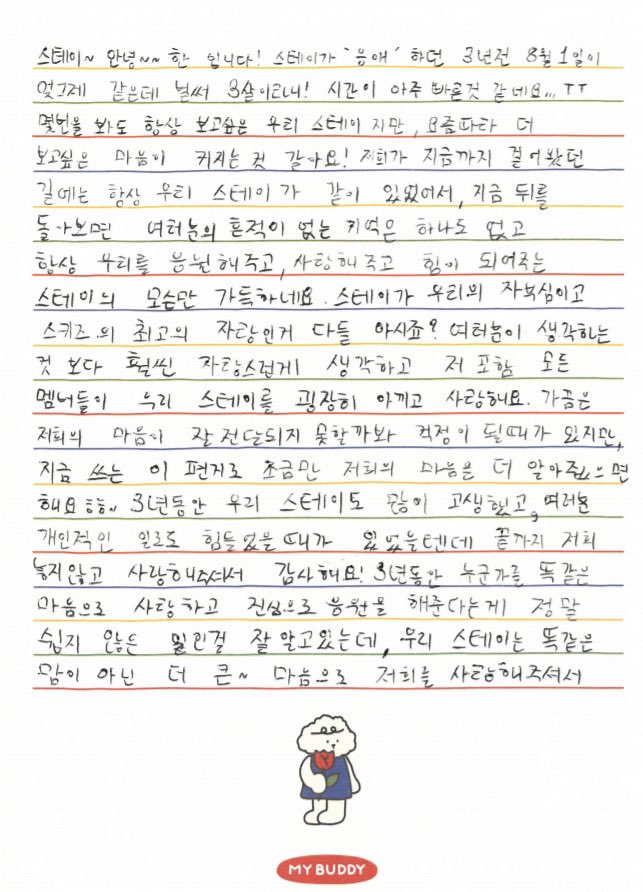 스테이~ 안녕~~ 한 입니다! 스테이가 '응애' 하던 3년전 8월 1일이
엊그제 같은데 벌써 3살이라니! 시간이 아주 빠른것 같네요... TT
몇번을 봐도 항상 보고싶은 우리 스테이지만, 요즘따라 더
보고싶은 마음이 커지는 것 같아요! 저희가 지금까지 걸어왔던
길에는 항상 우리 스테이가 같이 있었어서, 지금 뒤를
돌아보면 여러분의 흔적이 없는 기억은 하나도 없고
항상 우리를 응원해주고, 사랑해주고 힘이 되어주는
스테이의 모습만 가득하네요. 스테이가 우리의 자부심이고
스키즈의 최고의 자랑인거 다들 아시죠? 여러분이 생각하는
것 보다 훨씬 자랑스럽게 생각하고 저 포함 모든
멤버들이 우리 스테이를 굉장히 아끼고 사랑해요. 가끔은
저희의 마음이 잘 전달되지 못할까봐 걱정이 될때가 있지만,
지금 쓰는 이 편지로 조금만 저희의 마음을 더 알아줬으면
해요 흐흐~ 3년동안 우리 스테이도 많이 고생했고, 여러분
개인적인 일로도 힘들었을때가 있었을텐데 끝까지 저희
놓지않고 사랑해주셔서 감사해요! 3년동안 누군가를 똑같은
마음으로 사랑하고 진심으로 응원을 해준다는게 정말
쉽지 않은 일인걸 잘 알고있는데, 우리 스테이는 똑같은
맘이 아닌 더 큰~ 마음으로 저희를 사랑해주셔서
MY BUDDY